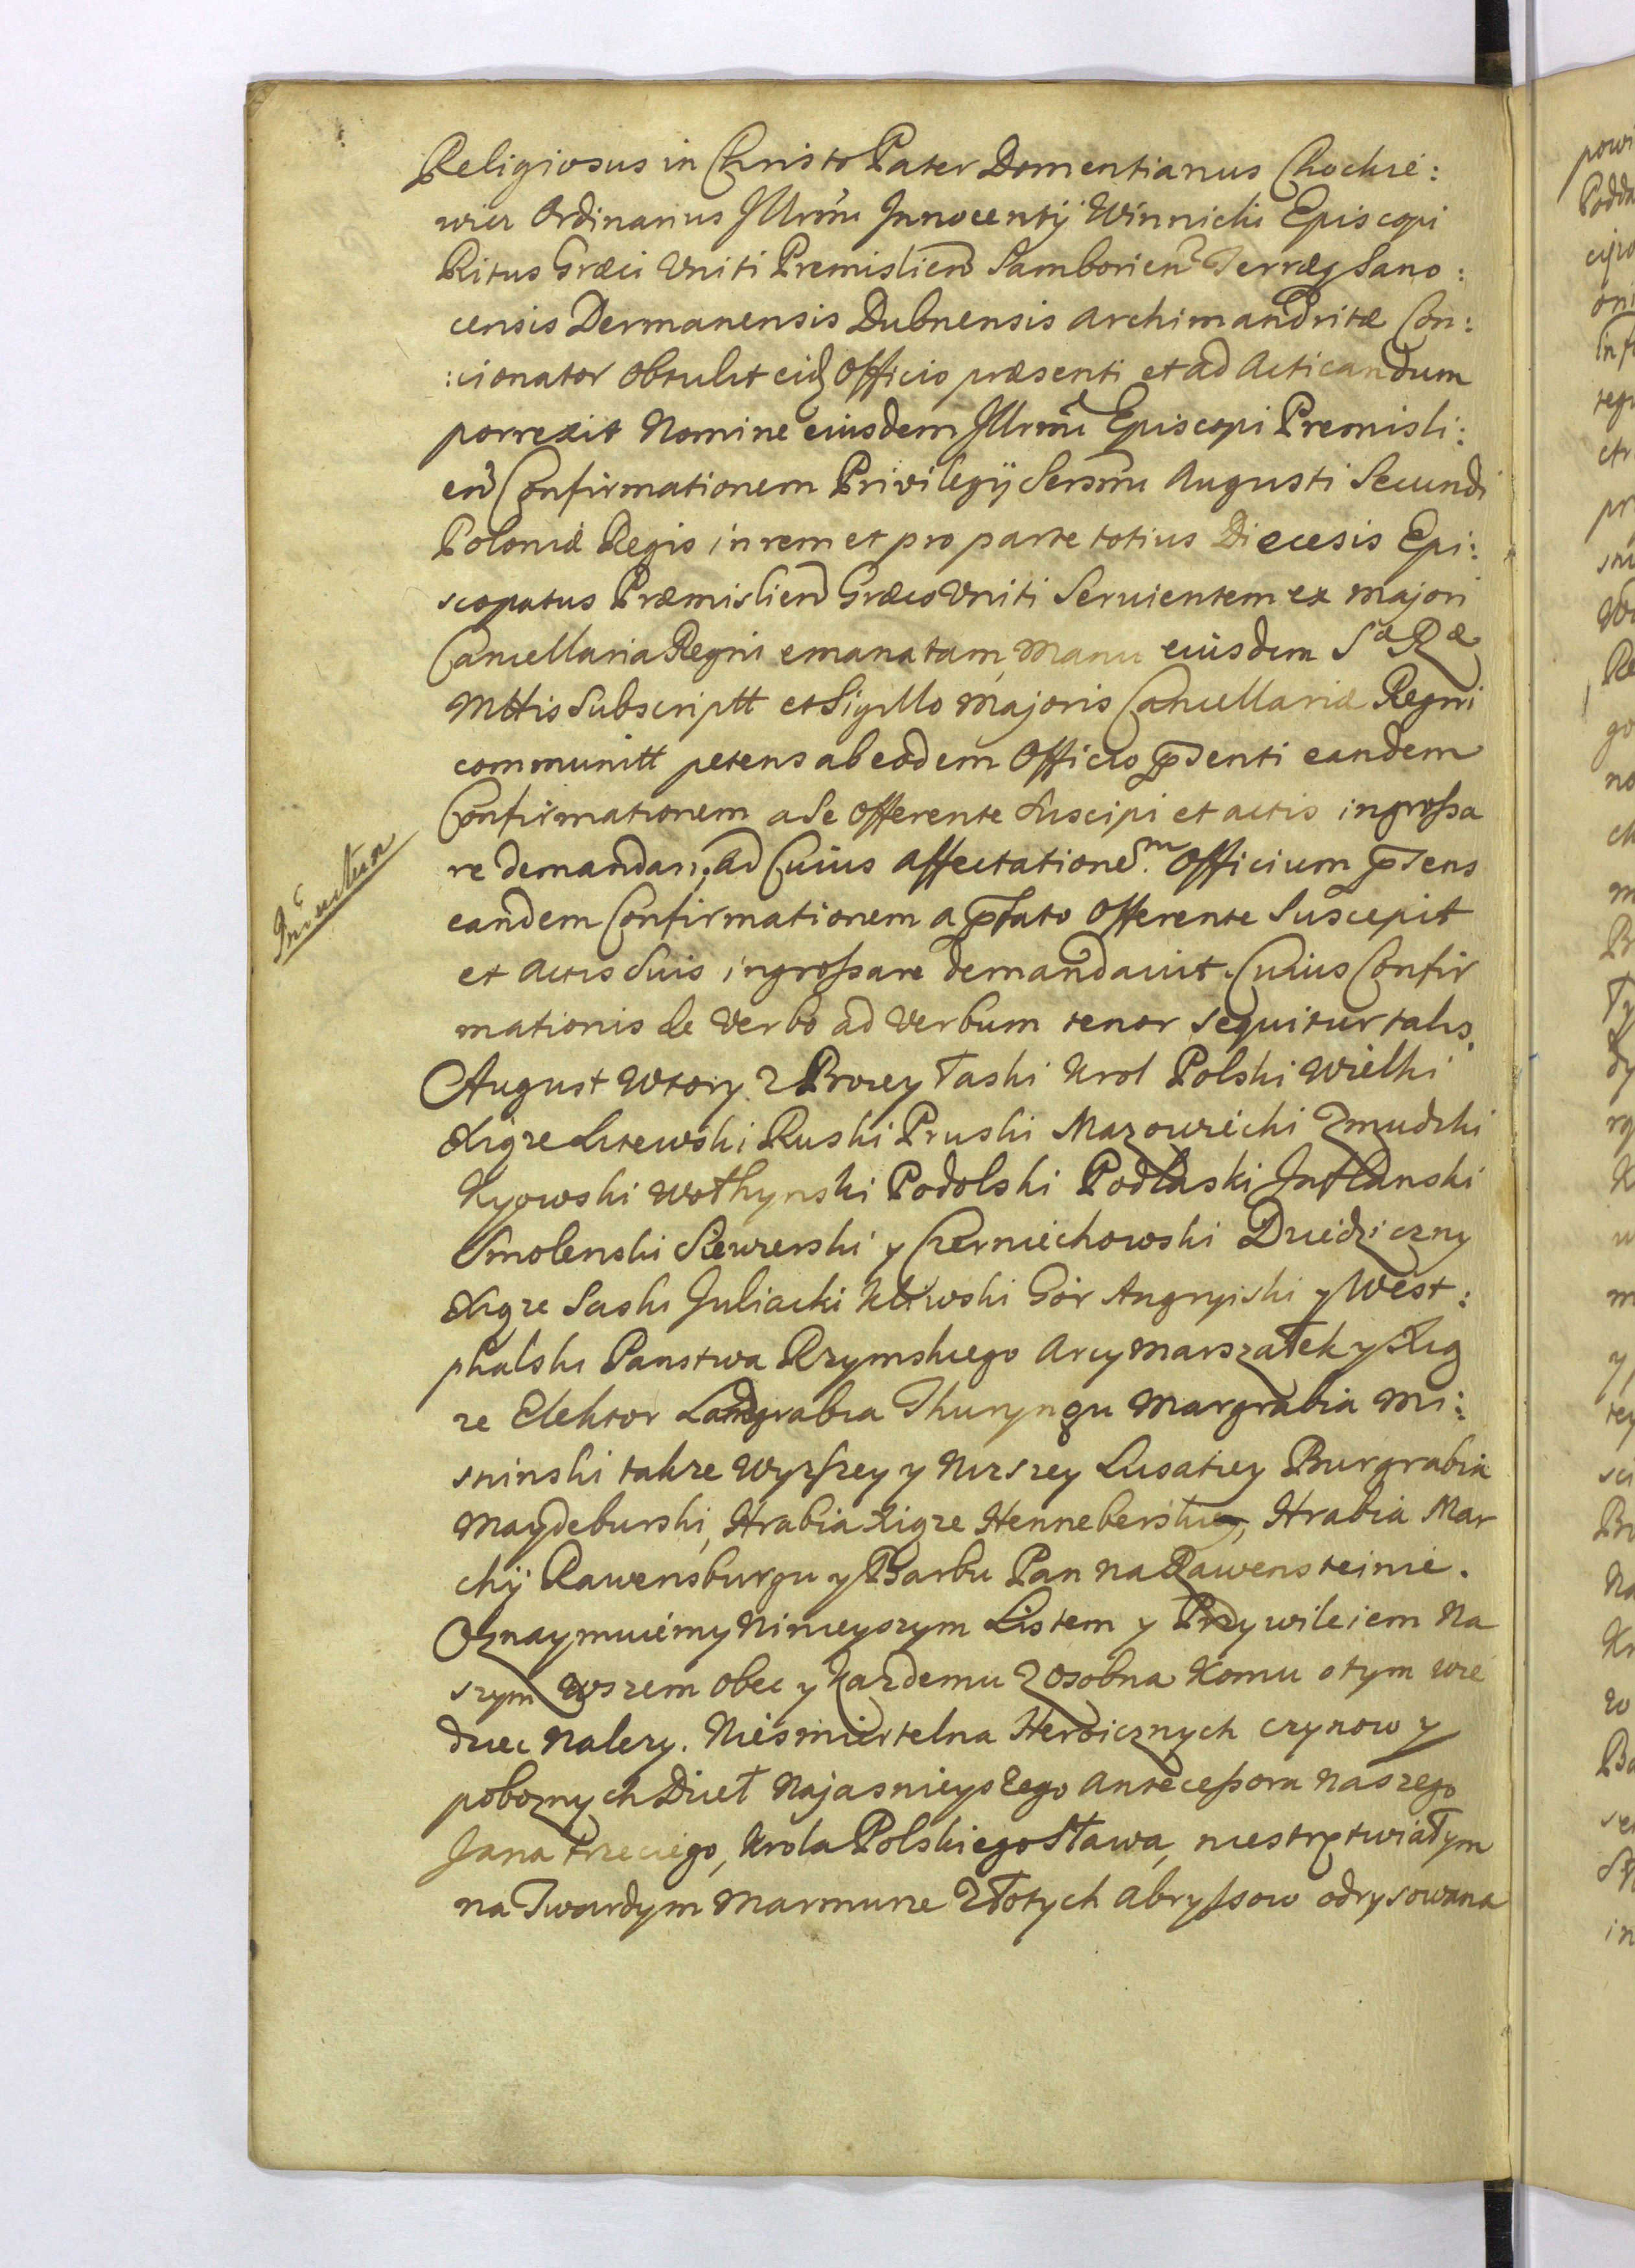 Religiosus in Christo Pater Domentianus Chochie:
wicz Ordinarius Jllrmi Jnnocentÿ Winnicki Episcopi
Ritus Græci Vniti Premislien Samborien Terræq Sano:
censis Dermanensis Dubnensis Archimandritæ Con:
:cionator Obtulit eidq Officio præsenti et ad Acticandum
porrexit Nomine eiusdem Jllrmi Episcopi Premisli:
en Confirmationem Privilegij Sersmi Augusti Secundi
Poloniæ Regis in rem et pro parte totius Diecesis Epi:
scopatus Præmislien Græco Vniti Seruientem ex Majori
Cancellaria Regni emanatam, Manu eiusdem Sæ Ræ
Mttis Subscriptt et Sigillo Majoris Cancellariæ Regni
communitt petens ab eodem Officio pͬsenti eandem
Confirmationem a Se Offerente Suscipi et actis ingrossa
re demandari; Ad Cuius Affectationem Officium pͬsens
Jnductua
eandem Confirmationem a pͬfato Offerente Suscepit
et Actis Suis ingrossare demandauit. Cuius Confir
mationis de Verbo ad Verbum tenor sequitur talis.
August Wtory z Bozey Łaski Krol Polski Wielki
Xiąze Litewski Ruski Pruski Mazowiecki Zmudzki
Kyowski Wołhynski Podolski Podlaski Jnflanski
Smolenski Siewierski y Czerniechowski Dziedziczny
Xiąze Saski Juliacki Kliwski Gór Angryiski y West:
phalski Panstwa Rzymskiego Arcy Marszałek y Xią
ze Elektor Landgrabia Thuryngu Margrabia Mi:
sninski takze Wyzszey y Nizszey Lusatiey Burgrabia
Maydeburski, Hrabia Xiąze Henneberskie, Hrabia Mar
chÿ Rawensburgu y Barbu Pan na Rawensteinie.
Oznaymuiemy Ninieyszym Listem y Przywileiem Na
szym Wszem Obec y Kazdemu z Osobna Komu o tym wie
dziec Nalezy. Niesmiertelna Heroicznych czynow y
poboznych Dzieł Najasnieyszego Antecessora Naszego
Jana Trzeciego, Krola Polskiego Sława, niestrętwiałym
na Twardym Marmurze Złotych Abryssow odrysowana